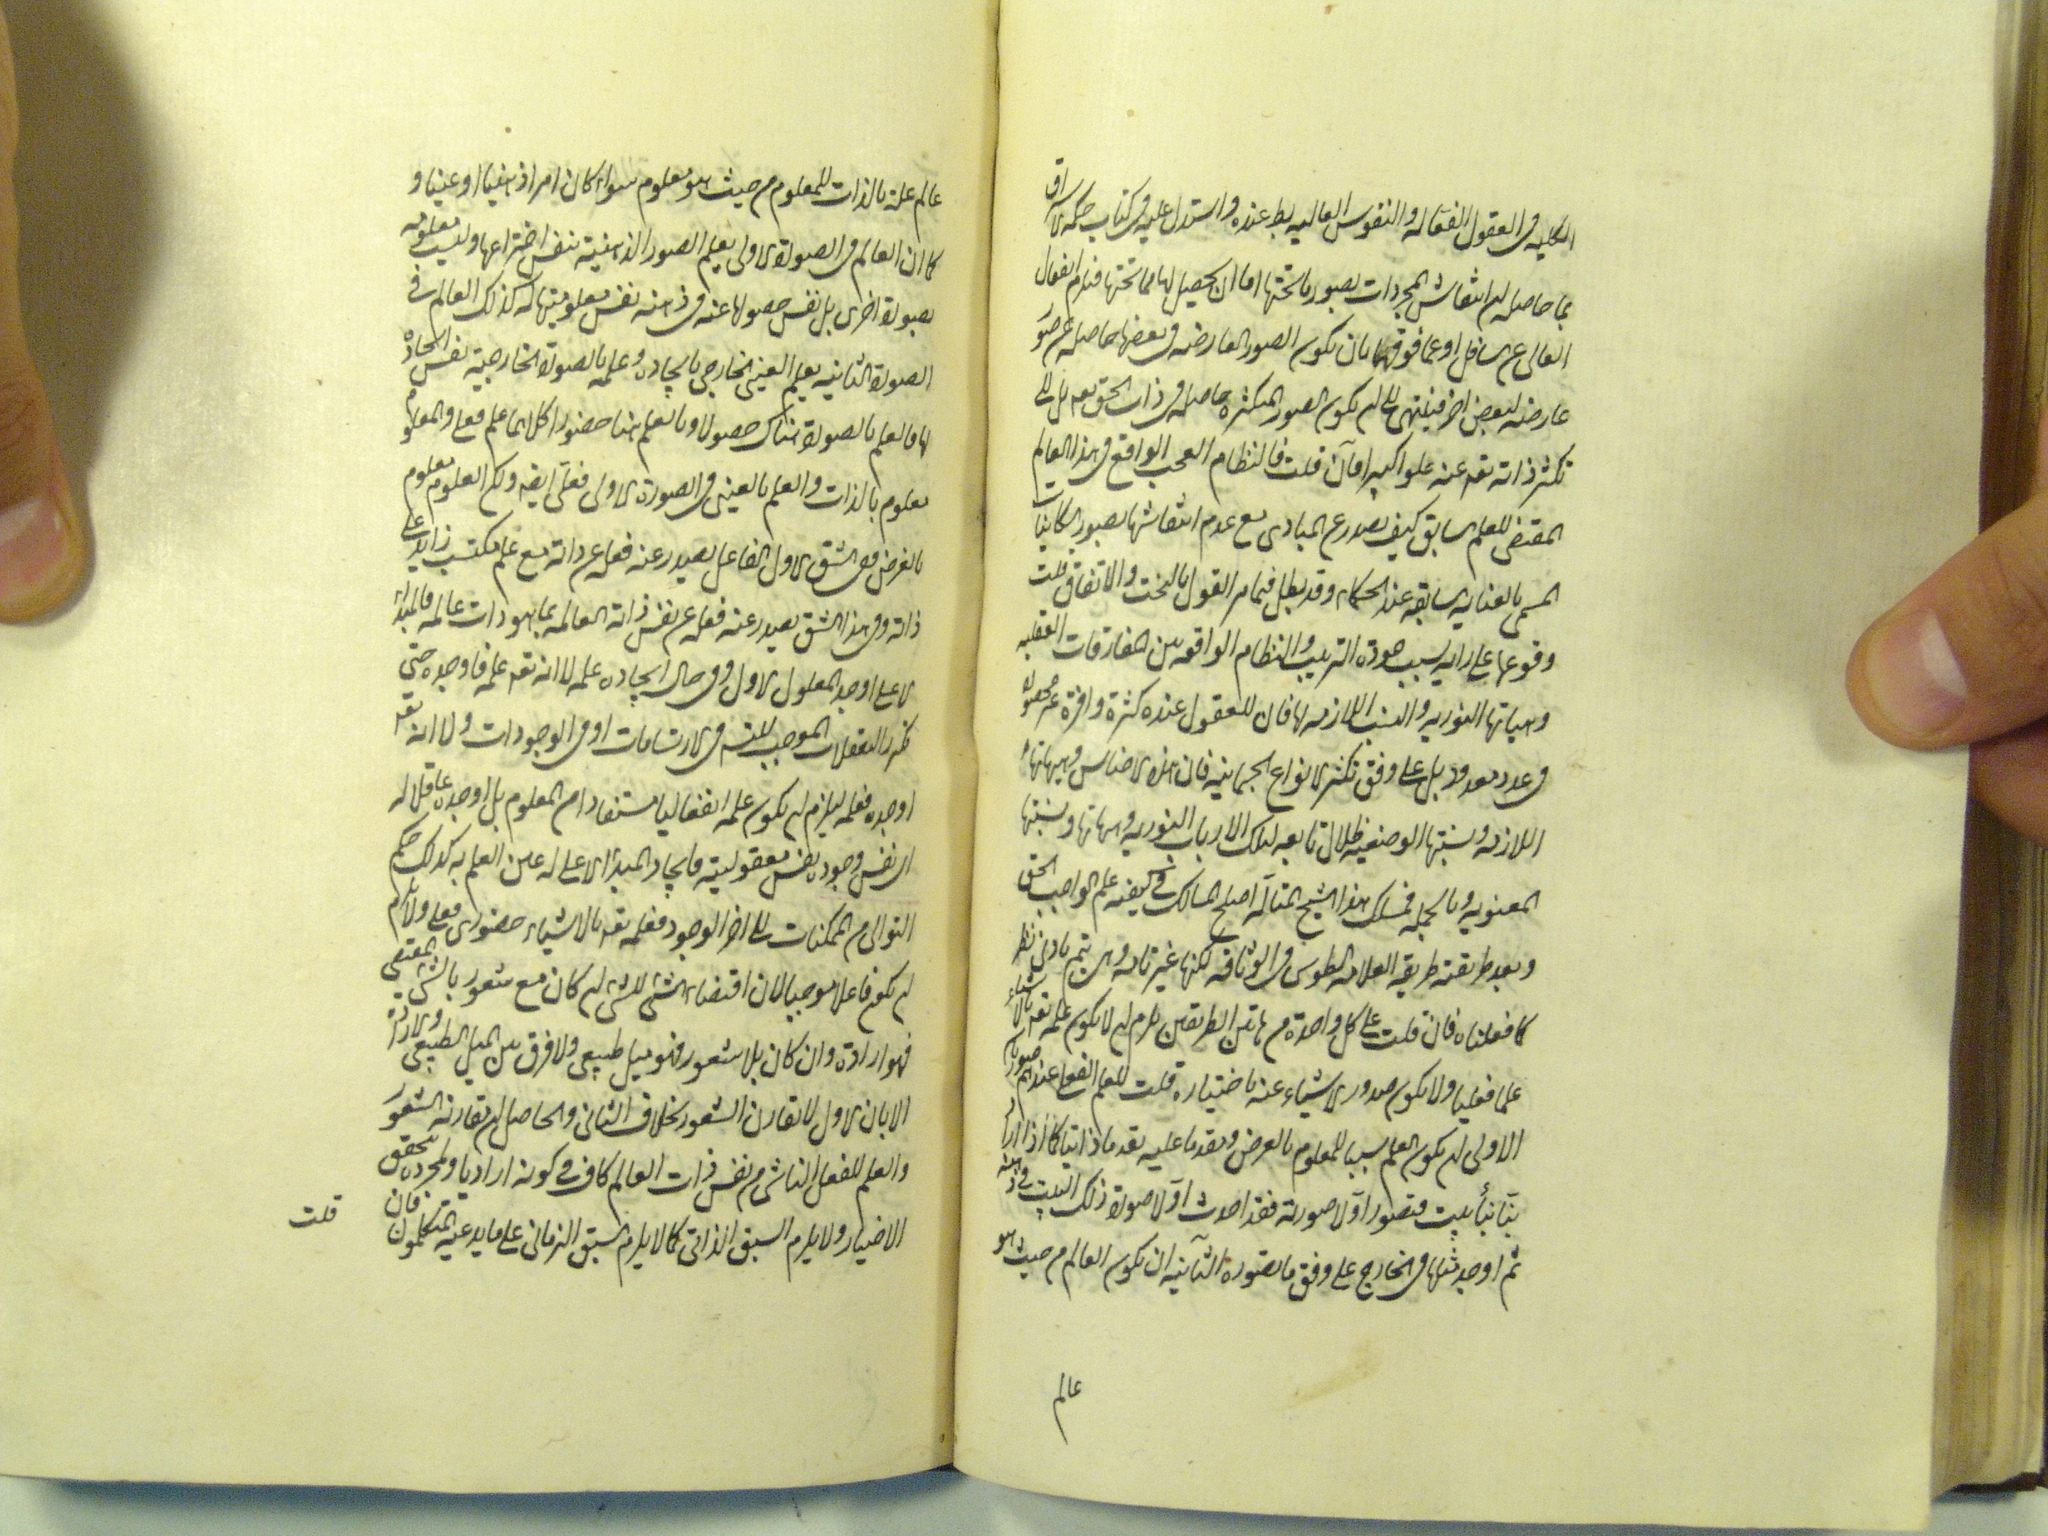 الكليه فى العقول الفعاله والنفوس العاليه بط عنده واستدل عليه فى كتاب حكمه الاشراق
بما حاصله ان انتقاش المجردات بصور ما تحتها اما ان يحصل لها مما تحتها فيلزم انفعال
العالى عن السافل او عما فوقها بان يكون الصور العارضه فى بعضها حاصله عن صور
عارضه لبعض اخر فينتهى الى ان يكون الصور المتكثره حاصله فى ذات الحق تعه بل الى
تكثر ذاته تعه عنه علوا كبيرا فان قلت فالنظام العجب الواقع فى هذا العالم
المقتضى للعلم السابق كيف يصدر عن المبادى مع عدم انتقاشها بصور الكاينات
المسمى بالعنايه السابقه عند الحكماء وقد بطل فيما مر القول بالبخت والاتفاق قلت
وقوعها على رايه بسبب جودة الترتيب والنظام الواقعه بين المفارقات العقليه
وهياتها النوريه والنسب اللازمه لها فان للعقول عنده كثرة وافرة غير محصوره
فى عدد معدود بل على وفق تكثر الانواع الجسمانيه فان هذه الاجناس وهيئاتها
اللازمه ونسبتها الوضعيه ظلال تابعه لتلك الارباب النوريه وهياتها ونسبتها
المعنويه وبالجمله فمسلك هذا الشيخ المتأله اصلح المسالك فى كيفيه علم الواجب الحق
وبعد طريقته طريقه العلامه الطوسى فى الوثاقه لكنها غير تامه وهى يتم بادنى نظر
كما فعلناه فان قلت على كل واحدة من هاتين الطريقين يلزم ان لا يكون علمه تعه بالاشياء
علما فعليا ولا يكون صدور الاشياء عنه باختياره قلت للعلم الفعلى عندهم صورتان
الاولى ان يكون العلم سببا للمعلوم بالعرض ومتقدما عليه تقدما ذاتيا كما اذا اراد
بنّا بناء بيت فتصور اولا صورته فقد احدث اولا صورة ذلك البيت فى ذهنه
ثم اوجد مثلها فى الخارج على وفق ما تصوره الثانيه ان يكون العالم من حيث هو
عالم
عالم علة بالذات للمعلوم من حيث هو معلوم سواء كان امرا ذهنيا او عينيا و
كما ان العالم فى الصورة الاولى يعلم الصور الذهنية بنفس اختراعها وليست معلومه
بصورة اخرى بل نفس حصولها عنه فى ذهنه نفس معلوميتها له كذلك العالم فى
الصورة الثانيه يعلم العينى الخارجى بايجاده وعلمه بالصورة الخارجية نفس ايجاده
لها فالعلم بالصورة هناك حصولا وبالعلم هنا حضورا كلاهما علم فعلى والمعلوم
معلوم بالذات والعلم بالعينى فى الصورة الاولى فعلى ايضه ولكن المعلوم معلوم
بالعرض ففى الشق الاول الفاعل يصدر عنه فعله عن ذاته مع علم مكتسب زايد على
ذاته وفى هذا الشق يصدر عنه فعله عن نفس ذاته العالمه بما هو ذات عالمه فالمبداء
الاعلى اوجد المعلول الاول وفى حال ايجاده علمه لا انه تعه علمه فاوجده حتى
تكثر التعقلات الموجب للتسه فى الارتسامات او فى الوجودات ولا انه تعه
اوجده فعلمه ليلزم ان يكون علمه انفعاليا مستفادا من المعلوم بل اوجده عاقلا له
اى نفس وجوده نفس معقوليته فايجاد المبدا الاعلى له عين العلم به كذلك حكم
التوالى من الممكنات الى اخر الوجود فعلمه تعه بالاشياء حضورى فعلى ولا يلزم
ان يكون فاعلا موجبا لان اقتضاء الشئ للشئ ان كان مع شعور بالشئ المقتضى
فهو ارادة وان كان بلا شعور فهو ميل طبيعى ولا فرق بين الميل الطبيعى والارادة
الا بان الاول لا تقارن الشعور بخلاف الثانى والحاصل ان مقارنة الشعور
والعلم للفعل الناشى من نفس ذات العالم كاف فى كونه اراديا ولمجرده تحقق
الاختيار ولا يلزم السبق الذاتى كما لا يلزم السبق الزمانى على ما يدعيه المتكلمون فان
قلت